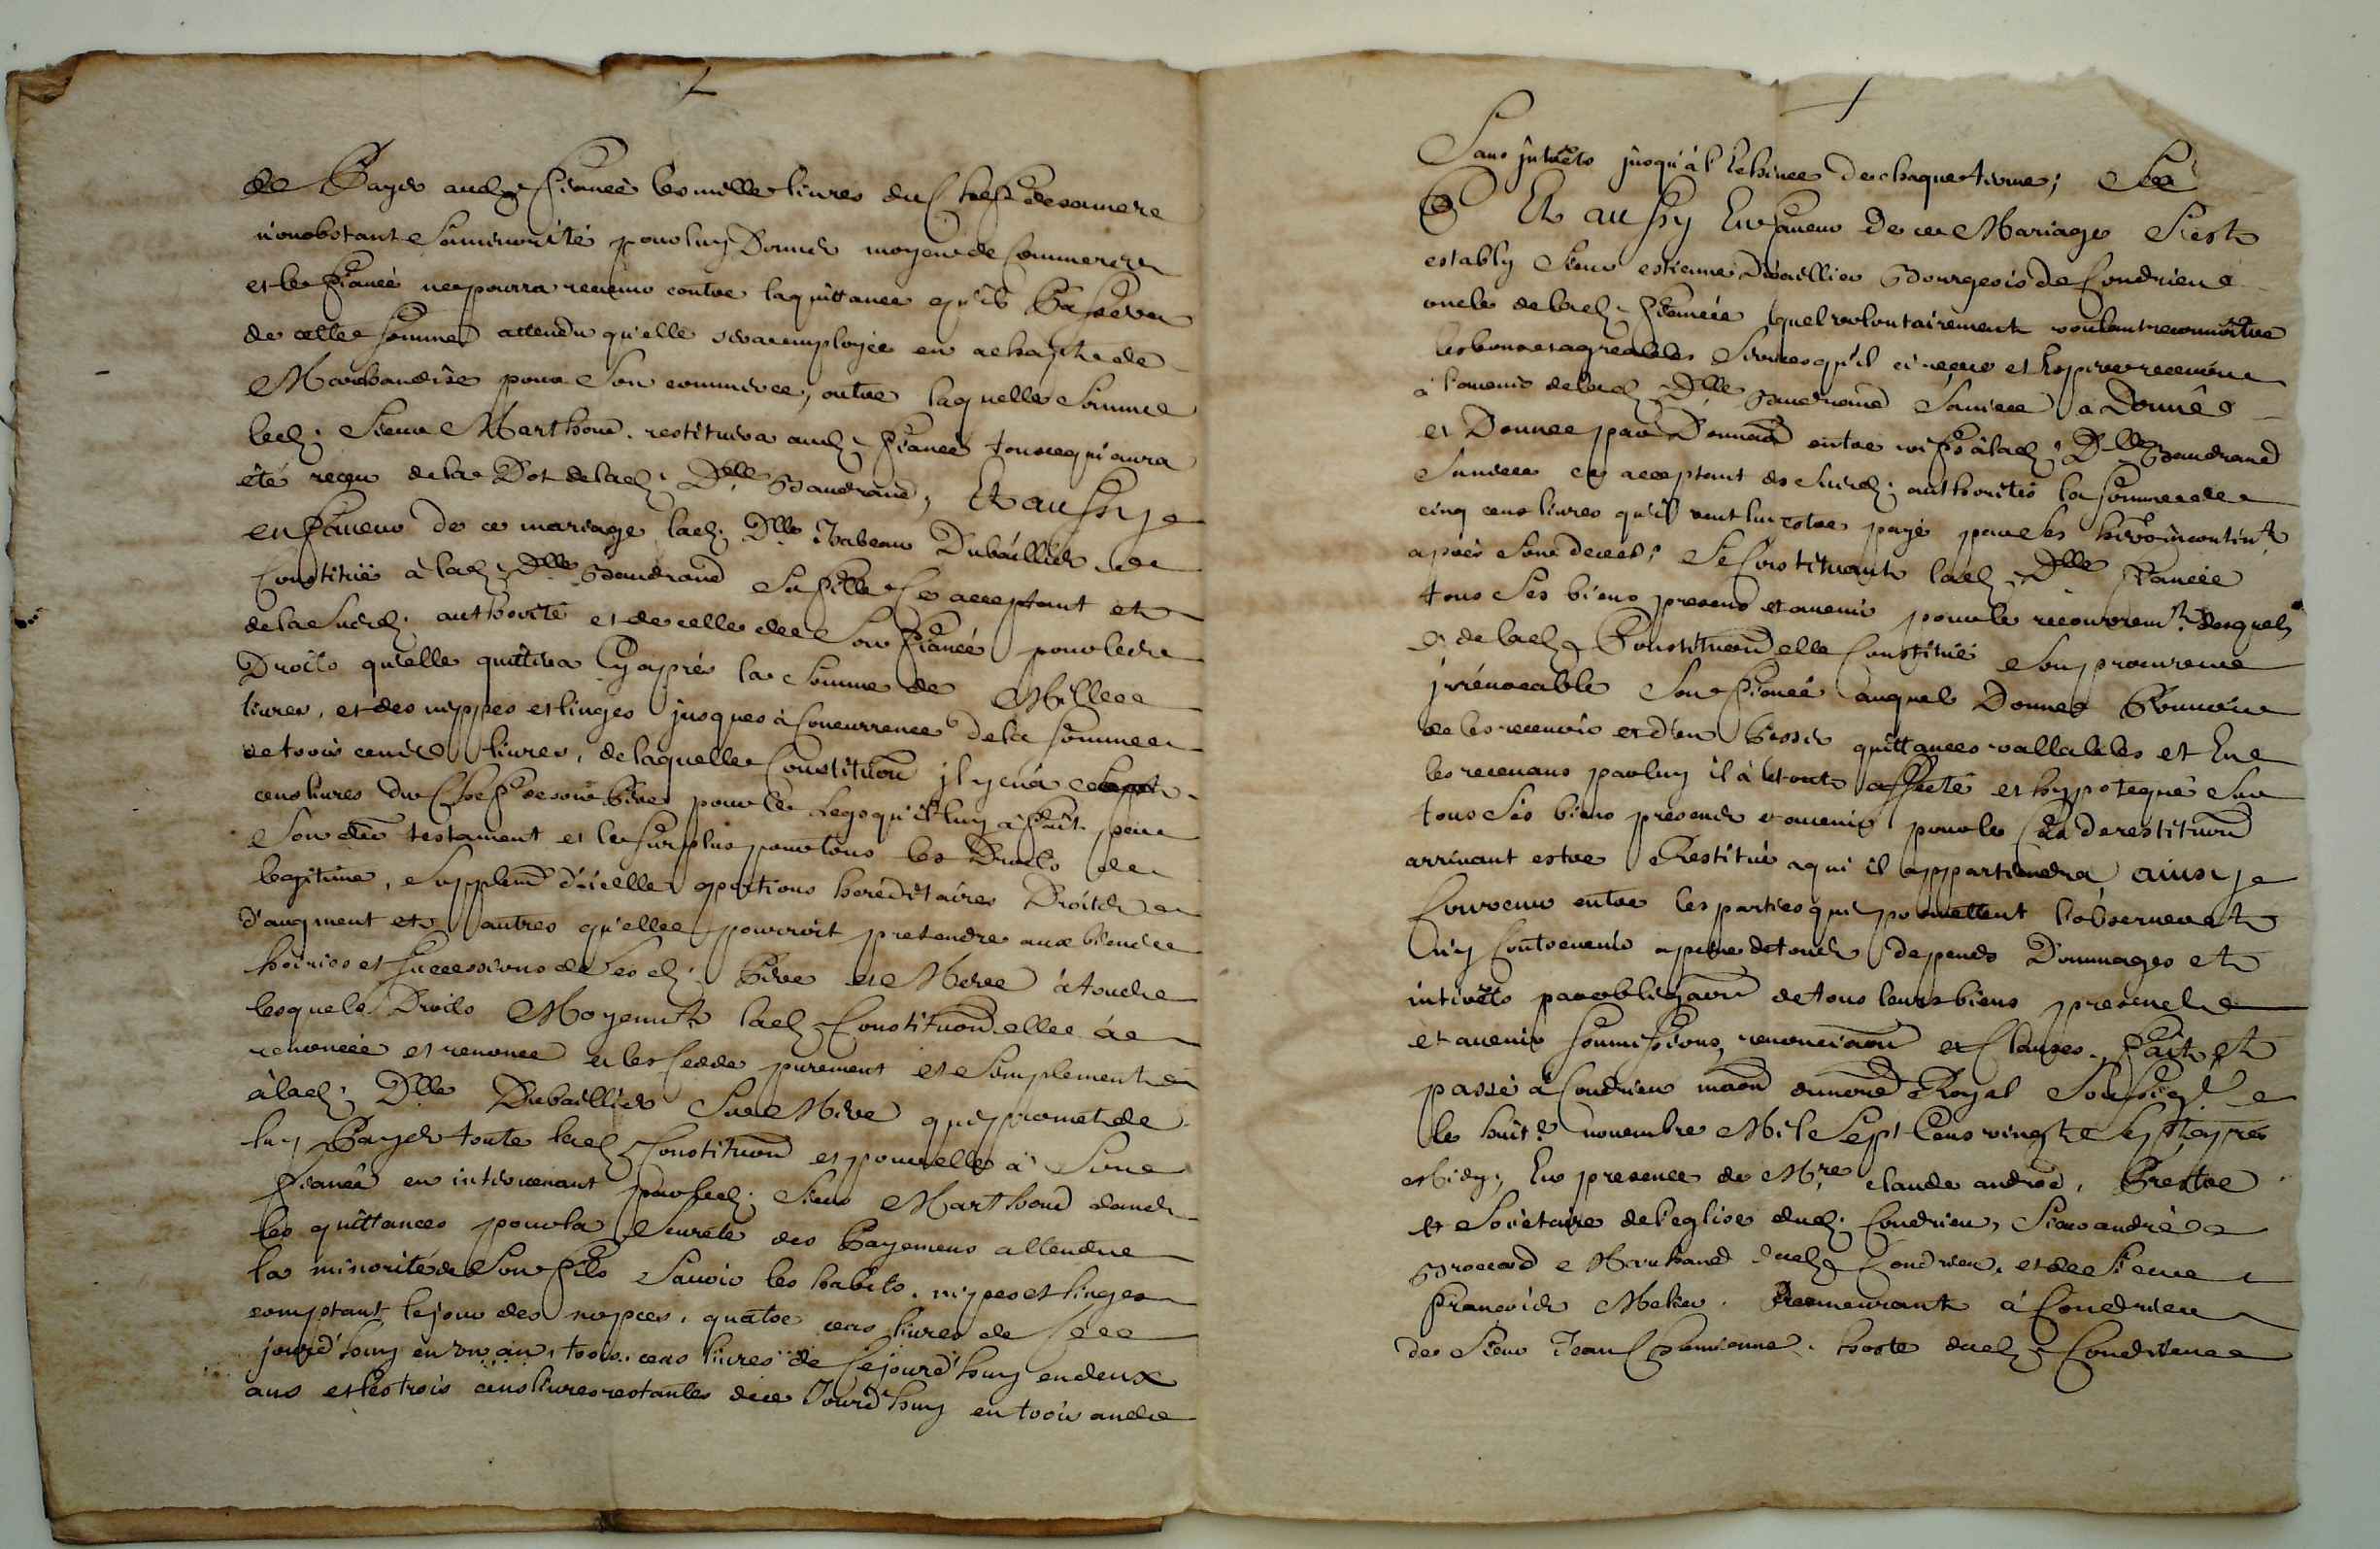 de Payer aud. fiancé les mille livres du Chef de sa mere
nonobstant sa minorité pour luy Donner moyen de Commercer
et le fiancé ne pourra revenir contre la quittance qu'il Passera
de cette somme attendu qu'elle sera employée en achapt de
Marchandise pour Son commerce, outre laquelle somme
led. Sieur Marthoud restituera aud. fiancé tout ce qui aura
été reçu de la Dot de lad. Dlle Baudrand, Et aussy
en faveur de ce mariage lad. Dlle Isabeau Dubaillier
Constitué à lad. Dlle Baudrand Sa fille Ce acceptant et
de la Susd. authorité et de celle de Son fiancé pour les
Droits qu'elle quittera Cy après la Somme de Mille
livres, et des nippes et linges jusques à Concurrence de la somme
de trois cents livres, de laquelle Constituõn il y en a
cens livres du Chef de son Pere pour le Legs qu'il luy a fait par
Son dern testament et le surplus pour tous les Droits de
legitime, Supplemt d'icelle, portions hereditaires Droits
d'augment et autres qu'elle pourroit pretendre aux biens
hoiries et successions de ses d. Pere et Mere à tous
lesquels Droits Moyent lad. Constituõn elle a
renoncé et renonce et les Cedde purement et Simplement
à lad. Dlle Dubaillier Sa Mere qui promet de
luy Payer toute lad. Constituõn et pour elle à Son
fiancé en intervenant par led. Sieur Marthoud dans
les quittances pour la Seureté des Payemens attendu
la minorité de Son fils Sauoir les habits, nipes et linges
comptant le jour des nopces, quatre cens livres de Ce
jourd'huy en un an, trois cens livres de Cejourd'huy en deux
ans et les trois cens livres restantes de ce Jourd'huy en trois ans
Sans intrêts jusqu'à l'Echeance de chaque terme;
Et aussy En faveur de ce Mariage S'est
estably Sieur estienne Dubaillier Bourgeois de Condrieu
oncle de lad. fiancée lequel volontairement voulant reconnoître
les bons et agreables Services qu'il a reçus et Espere recevoir
à l'avenir de lad. Dlle Baudrand Sa niece a Donné
et Donne par Donnaõn entre vifs à lad. Dlle Baudrand
Sa niece ce acceptant de Susd. authorités la somme de
cinq cens livres qu'il veut luy estre payé par ses hers incontint
après Son deces; Se Constituant lad. Dlle fiancée
tous Ses biens presens et avenir pour le recouvremt desquels
et de lad. Constituõn elle Constitué Son procureur
irrevocable Son fiancé auquel Donne Pouvoir
de les recevoir et d'en Passer quittances vallables et En
les recevans par luy il a le tout affecté et hypotequé Sur
tous Ses biens presens et avenir pour le Cas de restituõn
arrivant estre Restitué a qui il appartiendra ainsy
Convenu entre les parties qui promettent l'observer et
n'y Contrevenir a peine de tous depends Dommages et
interêts par obligaõn de tous leurs biens presens
et avenir soumissions, renonciaõn et Clauses. fait et
passé à Condrieu maõn du nore Royal Soussigé
le huite novembre Mil Sept Cens vingt Sept après
Midy; En presence de Mre Claude andré, Prestre
et Sociétaire de l'eglise dud. Condrieu, Sieur andré
Brocard Marchand dud. Condrieu, et de Sieur
François Melier Demeurant à Condrieu
de Sieur Jean hoste dud. Condrieu